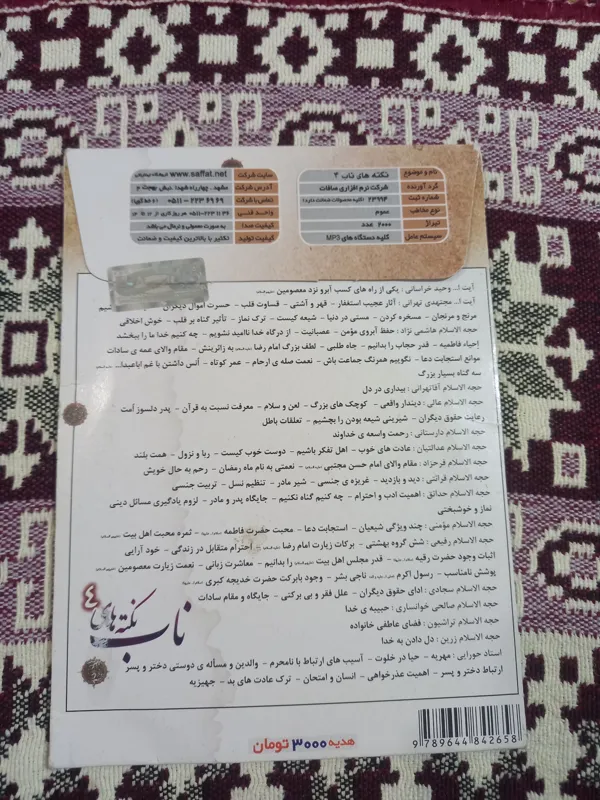 نام و موضوع نکته های ناب ۴
گرد آورنده شرکت نرم افزاری صافات
شماره ثبت ۲۳۹۹۴ (کلیه محصولات ضمانت دارد)
نوع مخاطب عموم
تیراژ ۲۰۰۰ عدد
سیستم عامل کلیه دستگاه های MP3
سایت شرکت www.saffat.net
آدرس شرکت مشهد، چهارراه شهدا، نبش بهجت ۲
تماس با شرکت ۰۵۱۱ - ۲۲۳۶۹۶۹ (۱۰ خط)
واحد فنی ۰۵۱۱-۲۲۳ ۱۱ ۳۶
کیفیت صدا به صورت معمولی و نرمال می باشد
کیفیت تولید تکثیر با بالاترین کیفیت و ضمانت
آیت ا... وحید خراسانی : یکی از راه های کسب آبرو نزد معصومین
آیت ا... مجتهدی تهرانی : آثار عجیب استغفار - قهر و آشتی - قساوت قلب - حسرت اموال دیگران
مرنج و مرنجان - مسخره کردن - مستی در دنیا - شیعه کیست - ترک نماز - تأثیر گناه بر قلب - خوش اخلاقی
حجه الاسلام هاشمی نژاد : حفظ آبروی مؤمن - عصبانیت - از درگاه خدا ناامید نشویم - چه کنیم خدا ما را ببخشد
احیاء فاطمیه - قدر حجاب را بدانیم - جاه طلبی - لطف بزرگ امام رضا به زائرینش - مقام والای عمه ی سادات
موانع استجابت دعا - نگوییم همرنگ جماعت باش - نعمت صله ی ارحام - عمر کوتاه - اُنس داشتن با غم اباعبدا...
سه گناه بسیار بزرگ
حجه الاسلام آقاتهرانی : بیداری در دل
حجه الاسلام عالی : دیندار واقعی - کوچک های بزرگ - لعن و سلام - معرفت نسبت به قرآن - پدر دلسوز اُمت
رعایت حقوق دیگران - شیرینی شیعه بودن را بچشیم - تعلقات باطل
حجه الاسلام دارستانی : رحمت واسعه ی خداوند
حجه الاسلام عدالتیان : عادت های خوب - اهل تفکر باشیم - دوست خوب کیست - ربا و نزول - همت بلند
حجه الاسلام فرحزاد : مقام والای امام حسن مجتبی - نعمتی به نام ماه رمضان - رحم به حال خویش
حجه الاسلام قرائتی : دید و بازدید - غریزه ی جنسی - شیر مادر - تنظیم نسل - تربیت جنسی
حجه الاسلام حدائق : اهمیت ادب و احترام - چه کنیم گناه نکنیم - جایگاه پدر و مادر - لزوم یادگیری مسائل دینی
نماز و خوشبختی
حجه الاسلام مؤمنی : چند ویژگی شیعیان - استجابت دعا - محبت حضرت فاطمه - ثمره محبت اهل بیت
حجه الاسلام رفیعی : شش گروه بهشتی - برکات زیارت امام رضا - احترام متقابل در زندگی - خود آرایی
اثبات وجود حضرت رقیه - قدر مجلس اهل بیت را بدانیم - معاشرت زبانی - نعمت زیارت معصومین
پوشش نامناسب - رسول اکرم ناجی بشر - وجود بابرکت حضرت خدیجه کبری
حجه الاسلام سجادی : ادای حقوق دیگران - علل فقر و بی برکتی - جایگاه و مقام سادات
حجه الاسلام صالحی خوانساری : حبیبه ی خدا
حجه الاسلام تراشیون : فضای عاطفی خانواده
حجه الاسلام زرین : دل دادن به خدا
استاد حورایی : مهریه - حیا در خلوت - آسیب های ارتباط با نامحرم - والدین و مسأله ی دوستی دختر و پسر
ارتباط دختر و پسر - اهمیت عذرخواهی - انسان و امتحان - ترک عادت های بد - جهیزیه
نکته های ناب ۴
هدیه ۳۰۰۰ تومان
9 789644 842658